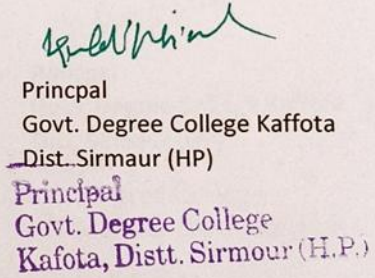 Princpal
Govt. Degree College Kaffota
Dist. Sirmaur (HP)
Principal
Govt. Degree College
Kafota, Distt. Sirmour (H.P.)